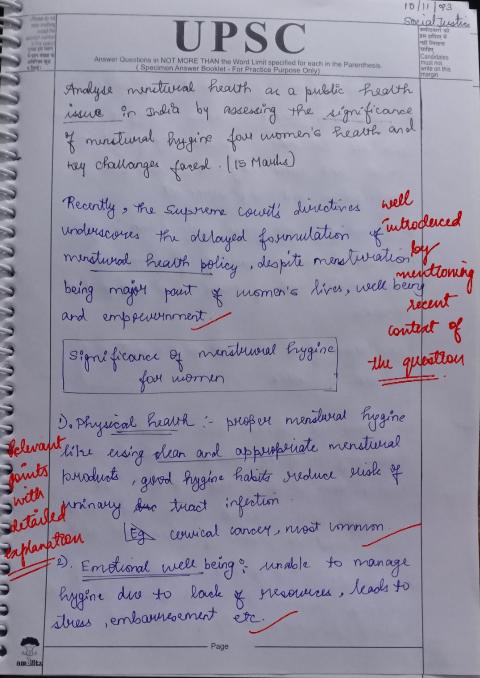 10/11/23
Social Justice
UPSC
Answer Questions in NOT MORE THAN the Word Limit specified for each in the Parenthesis.
( Specimen Answer Booklet - For Practice Purpose Only)
Candidates must not write on this margin
Analyse menstural health as a public health
issue in India by assessing the significance
of menstural hygine for women's health and
key challanges faced. (15 Marks)
Recently, the Supreme Court's directives
underscores the delayed formulation of
menstural health policy, despite mensturation
being major part of women's lives, well being
and empowerment.
well
introduced
by
mentioning
recent
context of
the question
Significance of menstural hygine
for women
1). Physical health :- proper menstural hygine
like using clean and appropriate menstural
products, good hygine habits reduce risk of
urinary tract infection.
Eg cervical cancer, most common
Relevant
points
with
detailed
explanation
2). Emotional well being :- unable to manage
hygine due to lack of resources, leads to
stress, embarresement etc.
Page